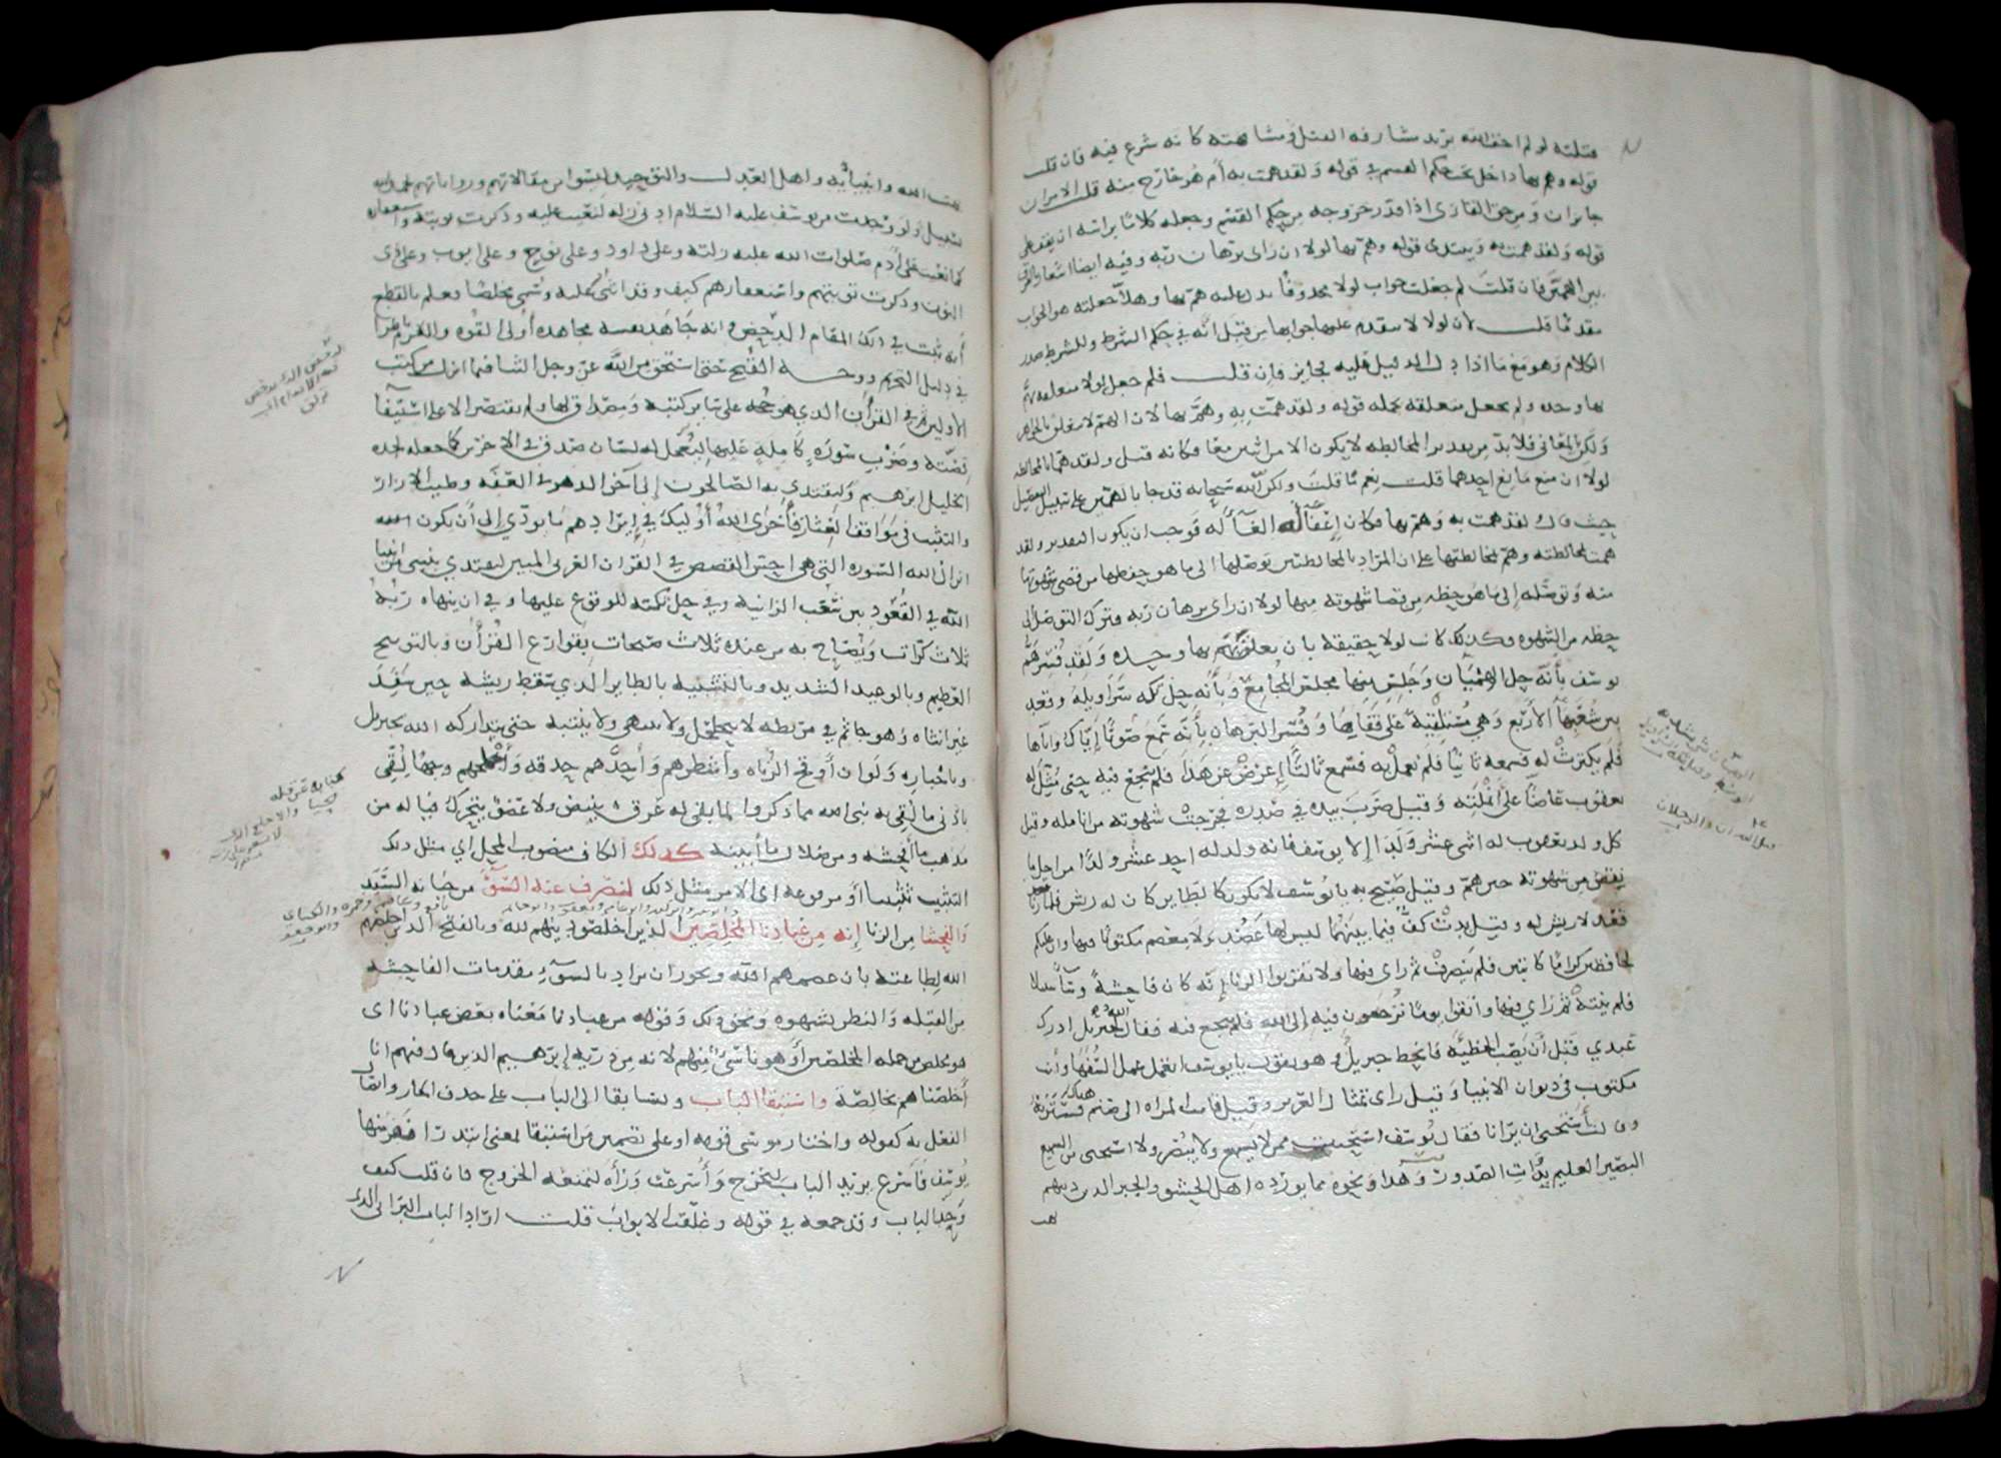 قتلته لو لم اخف الله يريد مشارفه القتل ومشافهته كانه شرع فيه فان قلت
قوله وهم بها داخل تحت حكم القسم في قوله ولقد همت به أم هو خارج منه قلت الامران
جايزان ومن حق القارى اذا قدر خروجه من حكم القسم وجعله كلاما براسه ان يقف على
قوله ولقد همت به ويبتدى قوله وهم بها لولا ان راى برهان ربه وفيه ايضا اشعار بالفرق
بين الهمين فان قلت لم جعلت جواب لولا محذوفا يدل عليه هم بها وهلا جعلته هو الجواب
مقدما قلت لان لولا لا يتقدم عليها جوابها من قبل انه في حكم الشرط وللشرط صدر
الكلام وهو مع ما
بها وحده ولم يجعل متعلقه بجمله قوله ولقد همت به وهم بها لان الهم لا يتعلق بالجواهر
ولكن بالمعاني فلا بد من تقدير المخالطه والمخالطه لا يكون الا من اثنين معا فكانه قيل ولقد هما بالمخالطه
لولا ان منع مانع احدهما قلت نعم ما قلت ولكن الله سبحانه قد جا بالهمين على سبيل التفصيل
حيث قال ولقد همت به وهم بها فكان إغفاله الغآء له فوجب ان يكون التقدير ولقد
همت بمخالطته وهم بمخالطتها على ان المراد بالمخالطتين توصلها الى ما هو حظها من قضى شهوتها
منه وتوصله إلى ما هو حظه من قضا شهوته منها لولا ان راى برهان ربه فترك التوصل الى
حظه من الشهوه فلذلك كانت لولا حقيقة بان يعلق بهم بها وحده وقد فسر هم
يوسف بأنه حل الهميان وجلس منها مجلس المجامع وبأنه حل تكه سراويله وقعد
بين شعبها الأربع وهي مستلقية على قفاها وفسر البرهان بأنه سمع صوتا إياك وإياها
فلم يكترث له فسمعه ثانيا فلم يعمل به فسمع ثالثا اعرض عنها فلم ينجع فيه حتى مثل له
يعقوب عاضا على أنملته وقيل ضرب بيده في صدره فخرجت شهوته من انامله وقيل
كل ولد يعقوب له اثنى عشر ولدا إلا يوسف فانه ولد له احد عشر ولدا من اجل ما
نقص من شهوته حين هم وقيل صيح به يا يوسف لا تكن كالطاير كان له ريش فلما زنا
قعد لا ريش له وقيل بدت كف فيما بينهما ليس لها عضد ولا معصم مكتوب فيها وان عليكم
لحافظين كراما كاتبين فلم ينصرف ثم راى فيها ولا تقربوا الزنا إنه كان فاحشة وسآ سبيلا
فلم ينته ثم راى فيها واتقوا يوما ترجعون فيه إلى الله فلم ينجع فيه فقال الله لجبريل ادرك
عبدي قبل أن يصيب الخطيئه فانحط جبريل وهو يقول يا يوسف اتعمل عمل السفها وأنت
مكتوب في ديوان الانبيا وقيل راى تمثال العزيز وقيل قامت المراه الى صنم كان هناك فسترته
وقالت أستحى ان يرانا فقال يوسف استحييت ممن لا يسمع ولا يبصر ولا استحى من السميع
البصير العليم بذات الصدور وهذا ونحوه مما يورده اهل الحشو والجبر الذين دينهم
بهت
بهت الله وانبيائه واهل العدل والتوحيد ليسوا من مقالاتهم ورواياتهم بحمد الله
بسبيل ولو وجدت من يوسف عليه السلام ادنى زله لنعيت عليه وذكرت توبته واستغفاره
كما نعيت على أدم صلوات الله عليه زلته وعلى داود وعلى نوح وعلى ايوب وعلى ذى
النون وذكرت توبتهم واستغفارهم كيف وقد اثنى عليه وسمى مخلصا فعلم بالقطع
أنه ثبت في ذلك المقام الدحض وانه جاهد نفسه مجاهده أولى القوه والعزم ناظرا
في دليل التحريم ووجه القبيح حتى استحق من الله عز وجل الثنا فيما انزل من كتب
الأولين ثم في القرآن الذي هو حجه على ساير كتبه ومصداق لها ولم يقتصر الا على استيفآ
قصته وضرب سورة كاملة عليها ليجعل له لسان صدق في الاخرين كما جعله لجده
الخليل ابرهيم وليقتدي به الصالحون إلى آخر الدهر في العفه وطيب الازار
والتثبت في مواقف العثار فأخزى الله أوليك في إيرادهم ما يودي إلى أن يكون
انزال الله السوره التي هي احسن القصص في القرآن العربي المبين ليقتدي بنبي من انبيا
الله في القعود بين شعب الزانية وفي حل تكته للوقوع عليها وفي ان ينهاه ربه
ثلاث كرات ويصاح به من عنده ثلاث صيحات بقوارع القرآن وبالتوبيخ
العظيم وبالوعيد الشديد وبالتشبيه بالطاير الذي سقط ريشه حين سفد
غير انثاه وهو جاثم في مربضه لا يتحلحل ولا ينتهى ولا ينتبه حتى يتداركه الله بجبريل
وباجباره ولو ان أوقح الزناه وأشطرهم وأحدهم حدقه وأجلحهم وجها لقى
بأدنى ما لقى به نبي الله مما ذكروا لما بقى له عرق ينبض ولا عضو يتحرك فيا له من
مذهب ما افحشه ومن ضلال ما أبينه كذلك الكاف منصوب المحل اي مثل ذلك
التثبيت ثبتناه أو مرفوعه اى الامر مثل ذلك لنصرف عنه السوء من خيانه السيد
والفحشا من الزنا إنه من عبادنا المخلصين الذين اخلصوا دينهم لله وبالفتح الذين اخلصهم
الله لطاعته بان عصمهم الله ويجوز ان يراد بالسوء مقدمات الفاحشه
من القبله والنظر بشهوه ونحو ذلك وقوله من عبادنا معناه بعض عبادنا اى
هو مخلص من جمله المخلصين أو هو ناشئ منهم لانه من ذريه إبرهيم الذين قال فيهم انا
أخلصناهم بخالصة واستبقا الباب وتسابقا الى الباب على حذف الجار وايصال
الفعل به كقوله واختار موسى قومه او على تضمين استبقا معنى ابتدرا ففر منها
يوسف فأسرع يريد الباب ليخرج وأسرعت ورآه لتمنعه الخروج فان قلت كيف
وحد الباب وقد جمعه في قوله وغلقت الابواب قلت اراد الباب البراني الذى